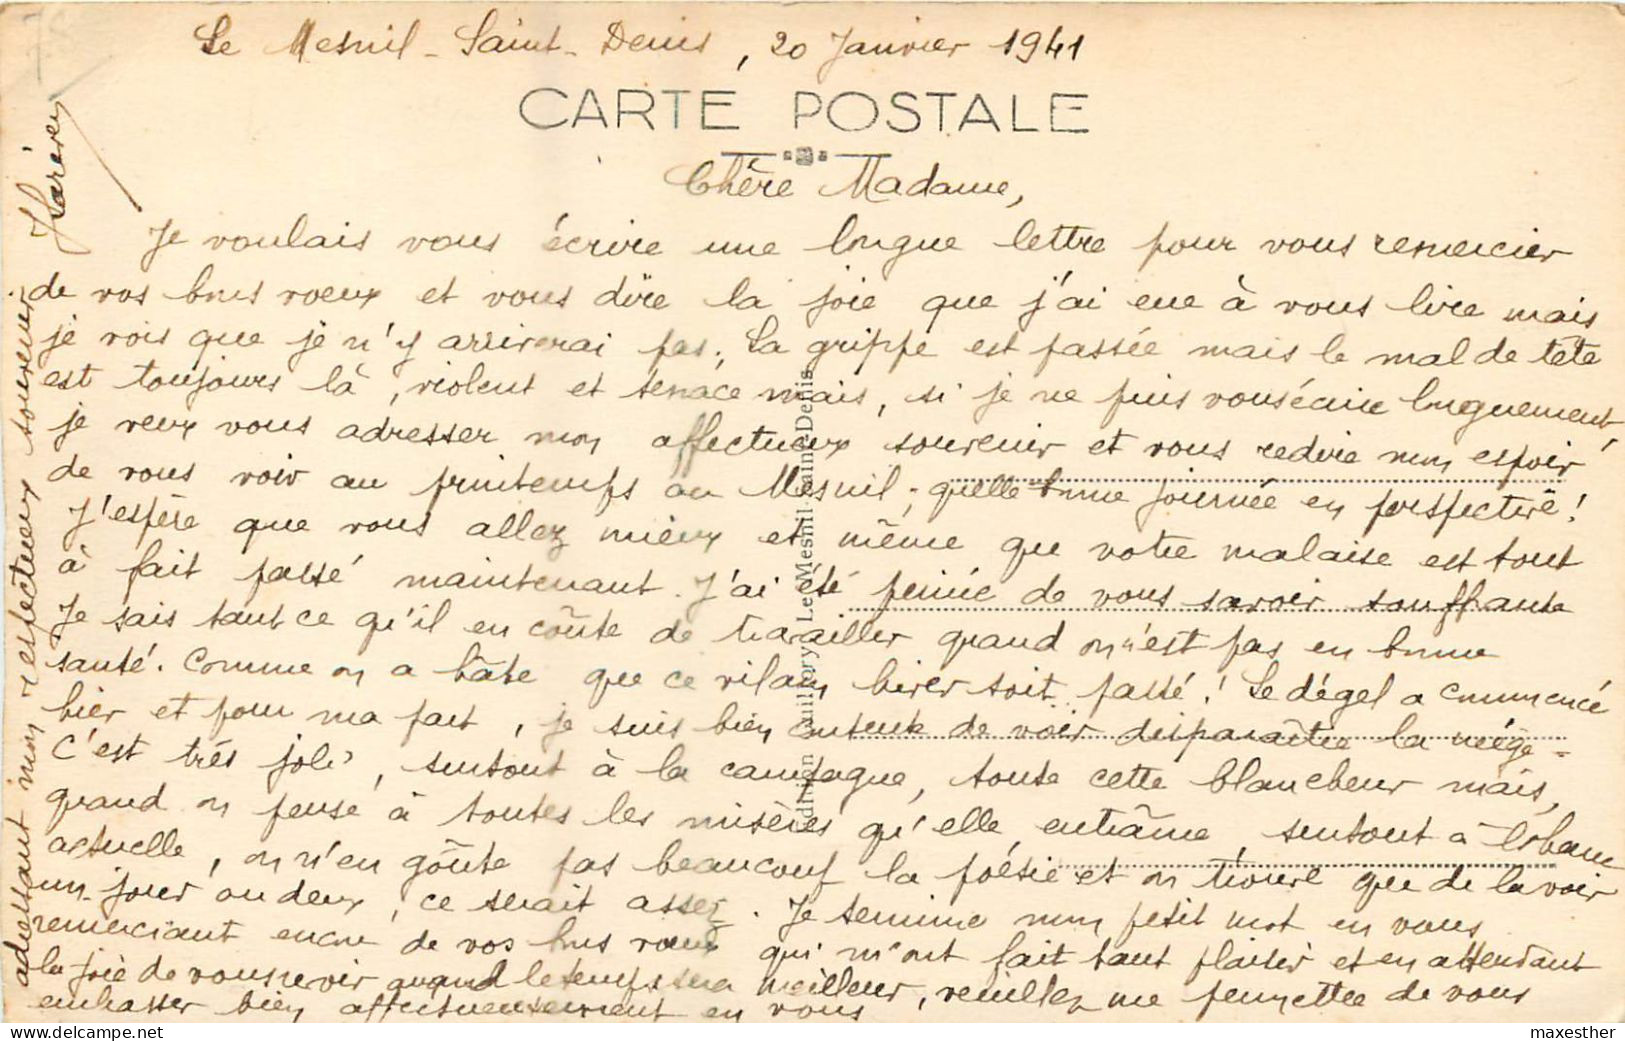 Le Mesnil-Saint-Denis, 20 Janvier 1941
CARTE POSTALE
Chère Madame,
Je voulais vous écrire une longue lettre pour vous remercier
de vos bons voeux et vous dire la joie que j'ai eue à vous lire mais
je vois que je n'y arriverai pas. La grippe est passée mais le mal de tête
est toujours là, violent et tenace mais, si je ne puis vous écrire longuement,
je veux vous adresser mon affectueux souvenir et vous redire mon espoir
de vous voir au printemps au Mesnil ; quelle bonne journée en perspective !
J'espère que vous allez mieux et même que votre malaise est tout
à fait passé maintenant. J'ai été peinée de vous savoir souffrante
Je sais tant ce qu'il en coûte de travailler quand on n'est pas en bonne
santé. Comme on a hâte que ce vilain hiver soit passé ! Le dégel a commencé
hier et pour ma part, je suis bien contente de voir disparaître la neige -
C'est très joli, surtout à la campagne, toute cette blancheur mais,
quand on pense à toutes les misères qu'elle entraîne, surtout à l'heure
actuelle, on n'en goûte pas beaucoup la poésie et on trouve que de la voir
un jour ou deux, ce serait assez. Je termine mon petit mot en vous
remerciant encore de vos bons voeux qui m'ont fait tant plaisir et en attendant
la joie de vous revoir quand le temps sera meilleur, veuillez me permettre de vous
embrasser bien affectueusement en vous
adressant mon respectueux souvenir.
Edition Guillory, Le Mesnil-Saint-Denis
maxesther